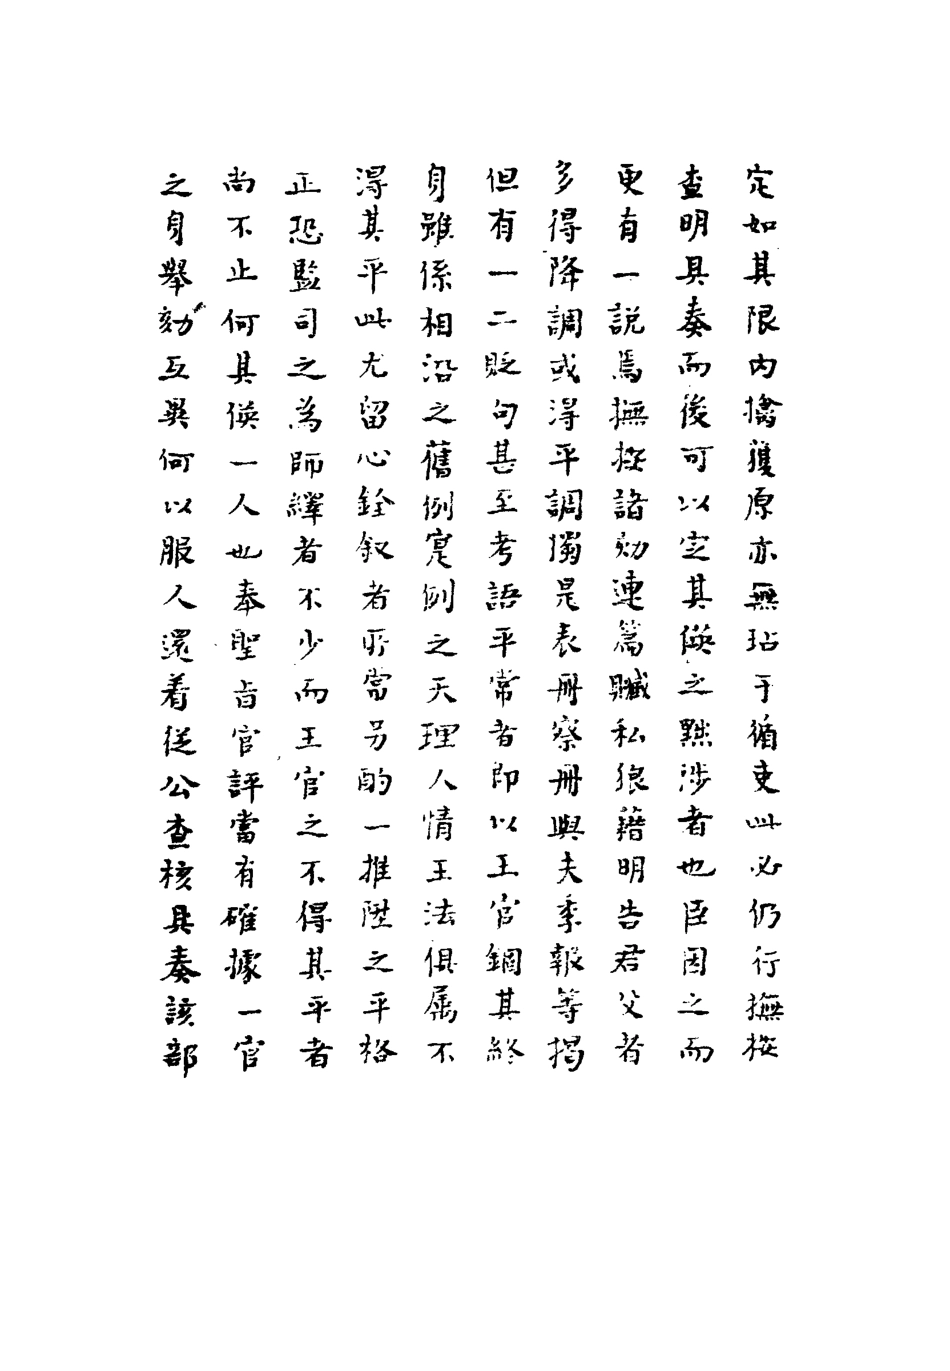 定如其限内擒獲原亦無玷于循吏此必仍行撫按
查明具奏而後可以定其俟之黜陟者也臣因之而
更有一説焉撫按諸劾連篇贓私狼藉明告君父者
多得降調或淂平調獨是表册察册與夫季報等揭
但有一二貶句甚至考語平常者即以王官錮其終
身雖係相沿之舊例寔例之天理人情王法俱属不
淂其平此尤留心銓叙者所當另酌一推陞之平格
正恐監司之為師繹者不少而王官之不得其平者
尚不止何其俟一人也奉聖旨官評當有確據一官
之身舉劾互異何以服人還着從公查核具奏該部